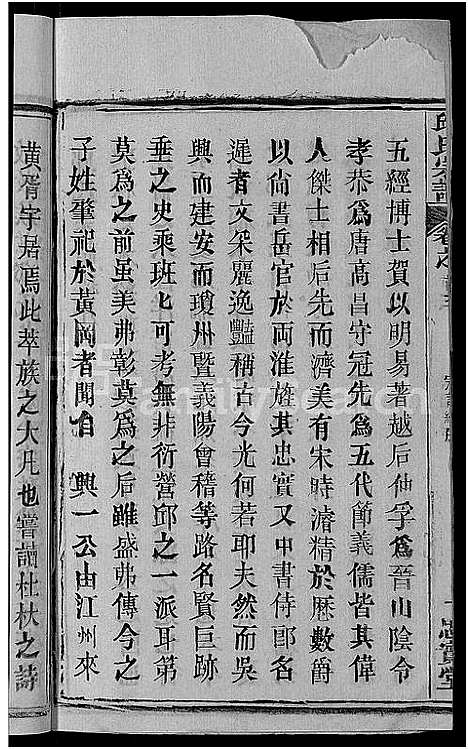 邱氏宗譜
五經博士賀以明易著越后仲孚爲晉山陰令
孝恭爲唐高昌守冠先爲五代節義儒皆其偉
人傑士相后先而濟美有宋時濬精於歷數爵
以尚書岳官於両淮旌其忠實又中書侍郎名
遲者文采麗逸豔稱古今光何若耶夫然而吳
興而建安而瓊州暨義陽會稽等路名賢巨跡
垂之史乘班匕可考無非衍營邱之一派耳第
莫爲之前虽美弗彰莫爲之后雖盛弗傳今之
子姓肇祀於黃岡者聞自 興一公由江州來
黄胥宇居焉此萃族之大凡也嘗誦杜杕之詩